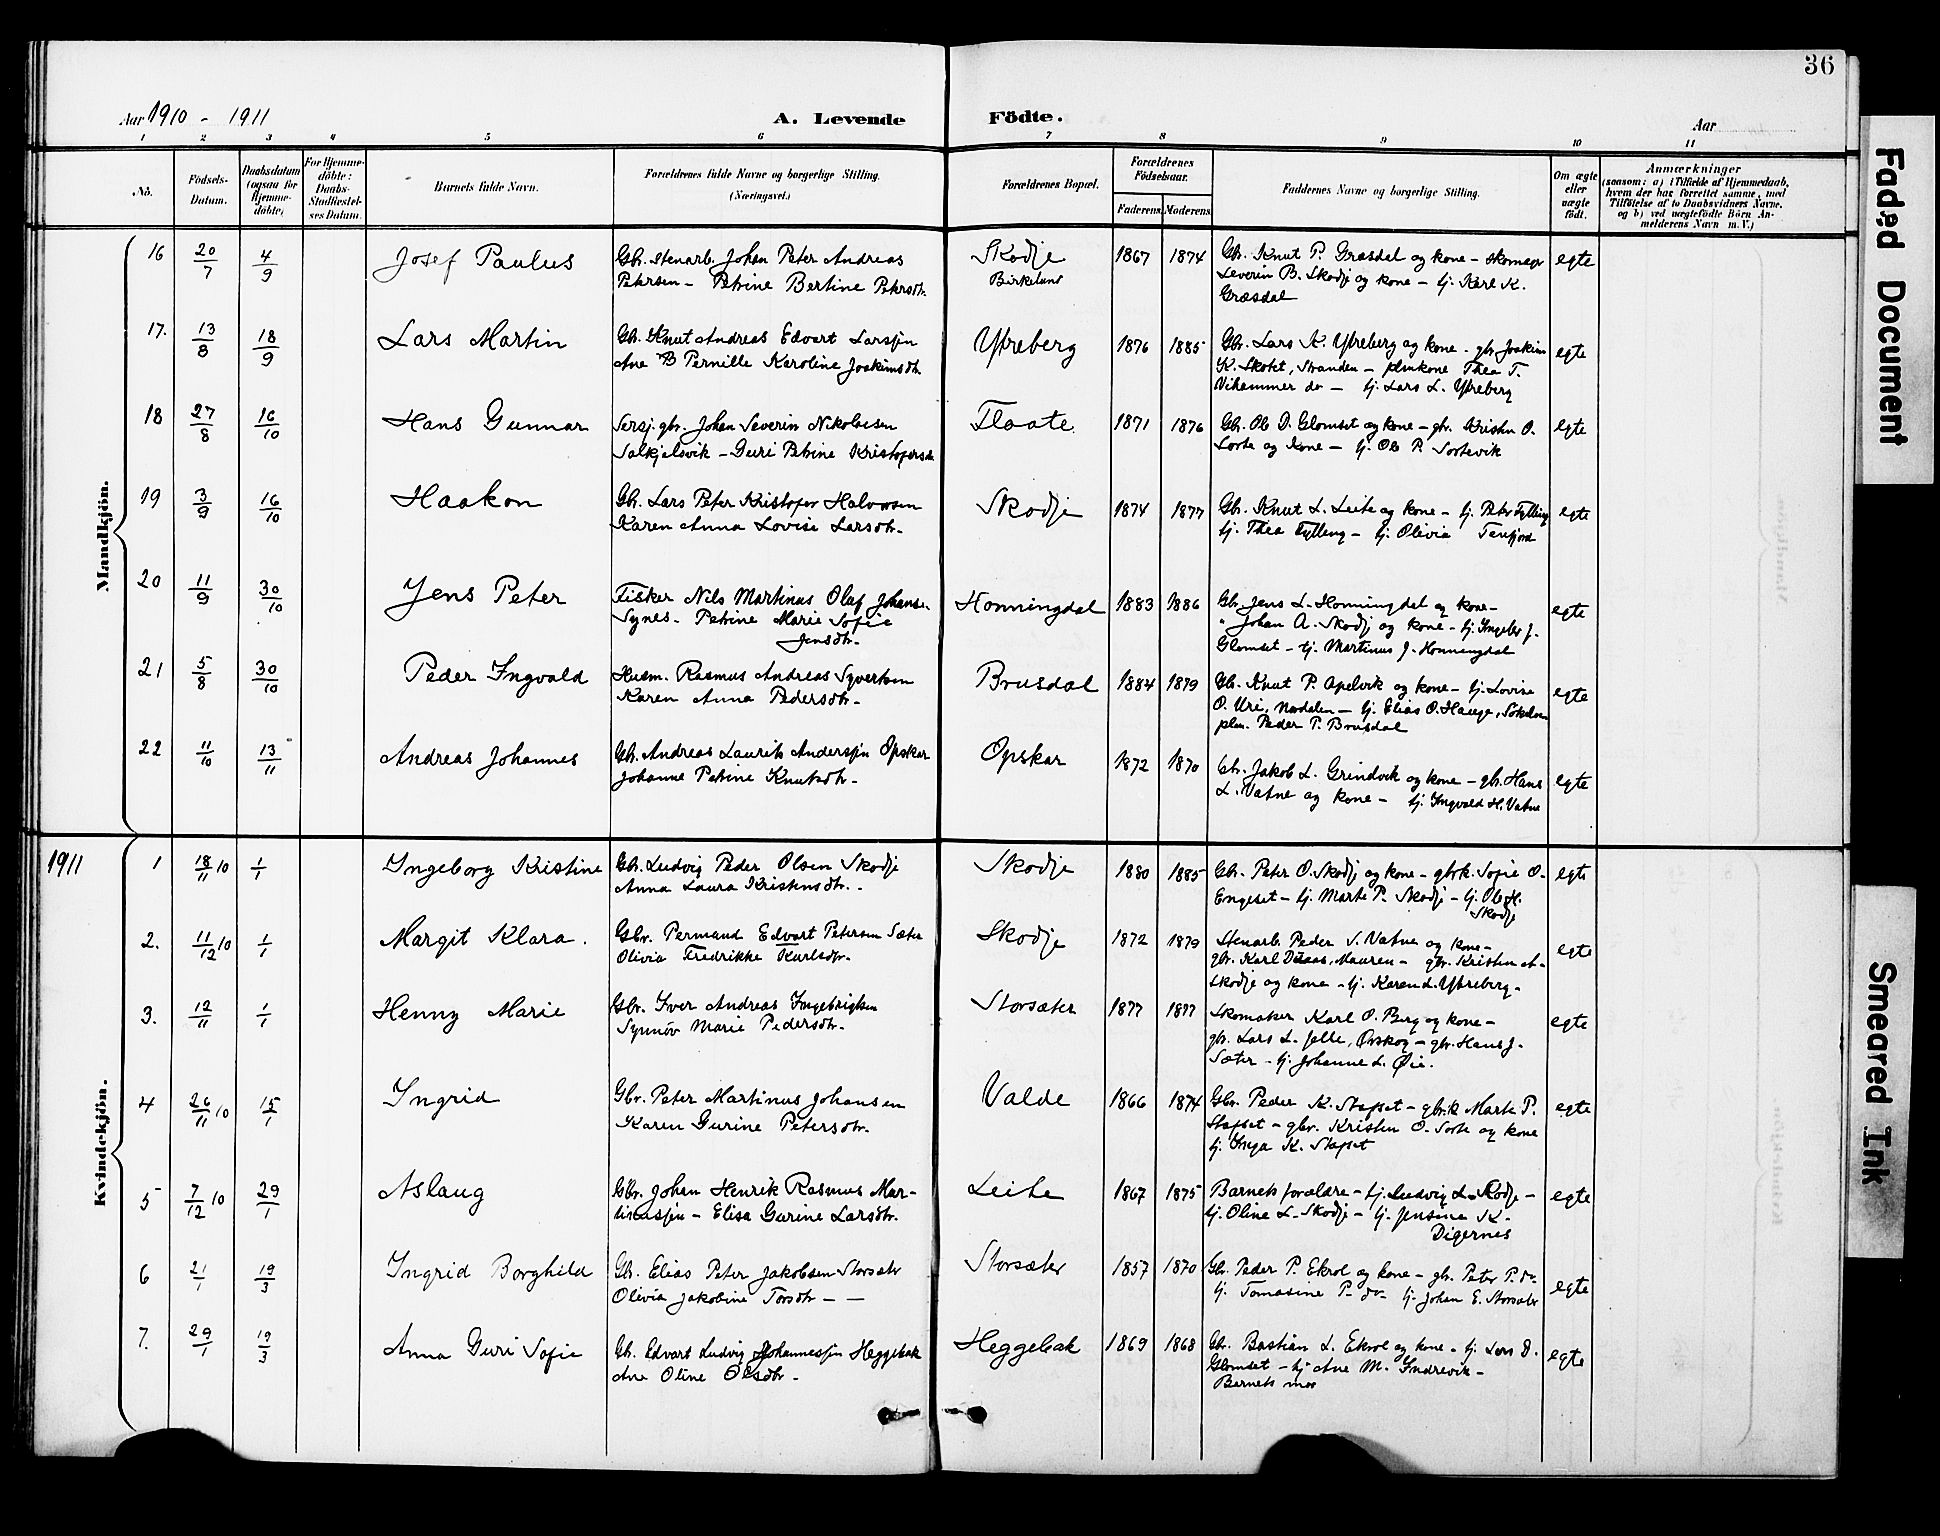 36
Aar 1910 - 1911
A. Levende Födte.
Aar
1 2 3 4 5 6 7 8 9 10 11
No.
Födsels-Datum.
Daabsdatum (ogsaa for Hjemme-döbte)
For Hjemme-döbte: Daabs-Stadfæstelses Datum.
Barnets fulde Navn.
Forældrenes fulde Navne og borgerlige Stilling.
(Næringsvei.)
Forældrenes Bopæl.
Forældrenes Födselsaar.
Faderens Moderens
Faddernes Navne og borgerlige Stilling.
Om ægte eller uægte födt.
Anmærkninger
(saasom: a) i Tilfælde af Hjemmedaab, hvem der har forrettet samme, med Tilföielse af to Daabsvidners Navne, og b) ved uægtefödte Börn Anmelderens Navn m. V.)
Mandkjön.
16 20/7 4/9 Josef Paulus
Gbr. stenarb. Johan Peter Andreas
Petersen - Petrine Bertine Petersdtr.
Skodje
Birkelund
1867 1874
Gbr. Knut P. Græsdal og kone - skomager
Severin B. Skodje og kone - tj. Karl K.
Græsdal
egte
17. 13/8 18/9 Lars Martin
Gbr. Knut Andreas Edvart Larssen
Ane B Pernille Karoline Joakimsdtr.
Ytreberg
1876 1885
Gbr. Lars K. Ytreberg og kone - gbr. Joakim
K. Skotet, Stranden - plmkone Thea T.
Vihammer do - tj. Lars L. Ytreberg
egte
18 27/8 16/10 Hans Gunnar
Sersj. gbr. Johan Severin Nikolaisen
Solkjelsvik - Guri Petrine Kristofersdtr.
Flaate
1871 1876
Gbr. Ole D. Glomset og kone - gbr. Kristen O.
Sorte og Kone - tj. Ole P. Sortevik
egte
19 3/9 16/10 Haakon
Gbr. Lars Peter Kristofer Halvorsen
Karen Anna Lovise Larsdtr.
Skodje
1874 1877
Gbr. Knut L. Leite og kone - tj. Peter Fylling
tj. Thea Fylling - tj. Olivia Tenfjord
egte
20 11/9 30/10 Jens Peter
Fisker Nils Martinus Olaf Johans.
Synes. Petrine Marie Sofie
Jensdtr.
Honningdal
1883 1886
Gbr. Jens L. Honningdal og kone -
" Johan A. Skodje og kone - tj. Ingebr J.
Glomset - tj. Martinus J. Honningdal
egte
21 5/8 30/10 Peder Ingvald
Husm. Rasmus Andreas Syvertsen
Karen Anna Pedersdtr.
Brusdal
1884 1879
Gbr. Knut P. Apelvik og kone - tj. Lovise
O. Uri, Nordalen - tj. Elias O. Hauge, Søkelven
plm. Peder P. Brusdal
egte
22 11/10 13/11 Andreas Johannes
Gbr. Andreas Laurits Anderssen Opskar
Johanne Petrine Knutsdtr.
Opskar
1872 1870
Gbr. Jakob L. Grindvik og kone - gbr. Hans
L. Vatne og kone - tj. Ingvald H. Vatne
egte
1911
Kvindekjön.
1 18/11 10 1/1 Ingeborg Kristine
Gbr. Ludvig Peder Olsen Skodje
Anna Laura Kristensdtr.
Skodje
1880 1885
Gbr. Peter O. Skodje og kone - gbrk. Sofie O.
Engeset - tj. Marte P. Skodje - tj. Ole H.
Skodje
egte
2. 11/12 10 1/1 Margit Klara.
Gbr. Permand Edvart Petersen Sæter
Olivia Fredrikke Karlsdtr.
Skodje
1872 1879
Stenarb. Peder S. Vatne og kone -
gbr. Karl Mauren - gbr. Kristen A.
Skodje og kone - tj. Karen L. Ytreberg.
egte
3. 12/11 1/1 Henny Marie
Gbr. Iver Andreas Ingebrigtsen
Synnøv Marie Pedersdtr.
Storsæter
1877 1877
Skomaker Karl O. Berg og kone -
gbr. Lars L. Jelle, Ørskog - gbr. Hans J.
Sæter - tj. Johanne L. Øie.
egte
4 26/11 10 15/1 Ingrid
Gbr. Peter Martinus Johansen
Karen Gurine Petersdtr.
Valde
1866 1874
Gbr. Peder K. Stafset - gbrk Marte P.
Stafset - gbr. Kristen O. Sorte og kone
tj. Inga K. Stafset
egte
5 7/12 10 29/1 Aslaug
Gbr. Johan Henrik Rasmus Mar-
tinussen - Elisa Gurine Larsdtr.
Leite
1867 1875
Barnets forældre - tj. Ludvig L. Skodje -
tj. Oline L. Skodje - tj. Jensine K.
Digernes
egte
6 21/1 19/3 Ingrid Borghild
Gbr. Elias Peter Jakobsen Storsæter
Olivia Jakobine Torsdtr. -
Storsæter
1857 1870
Gbr. Peder P. Ekrol og kone - gbr. Peter P. do.
tj. Tomasine P. do. tj. Johan E. Storsæter
egte
7. 29/1 19/3 Anna Guri Sofie
Gbr. Edvart Ludvig Johannessen Heggebak
Ane Oline Olsdtr.
Heggebak
1869 1868
Gbr. Bastian L. Ekrol og kone - tj. Lars O.
Glomset - tj. Ane M. Indrevik -
Barnets mor
egte
Faded Document
Smeared Ink